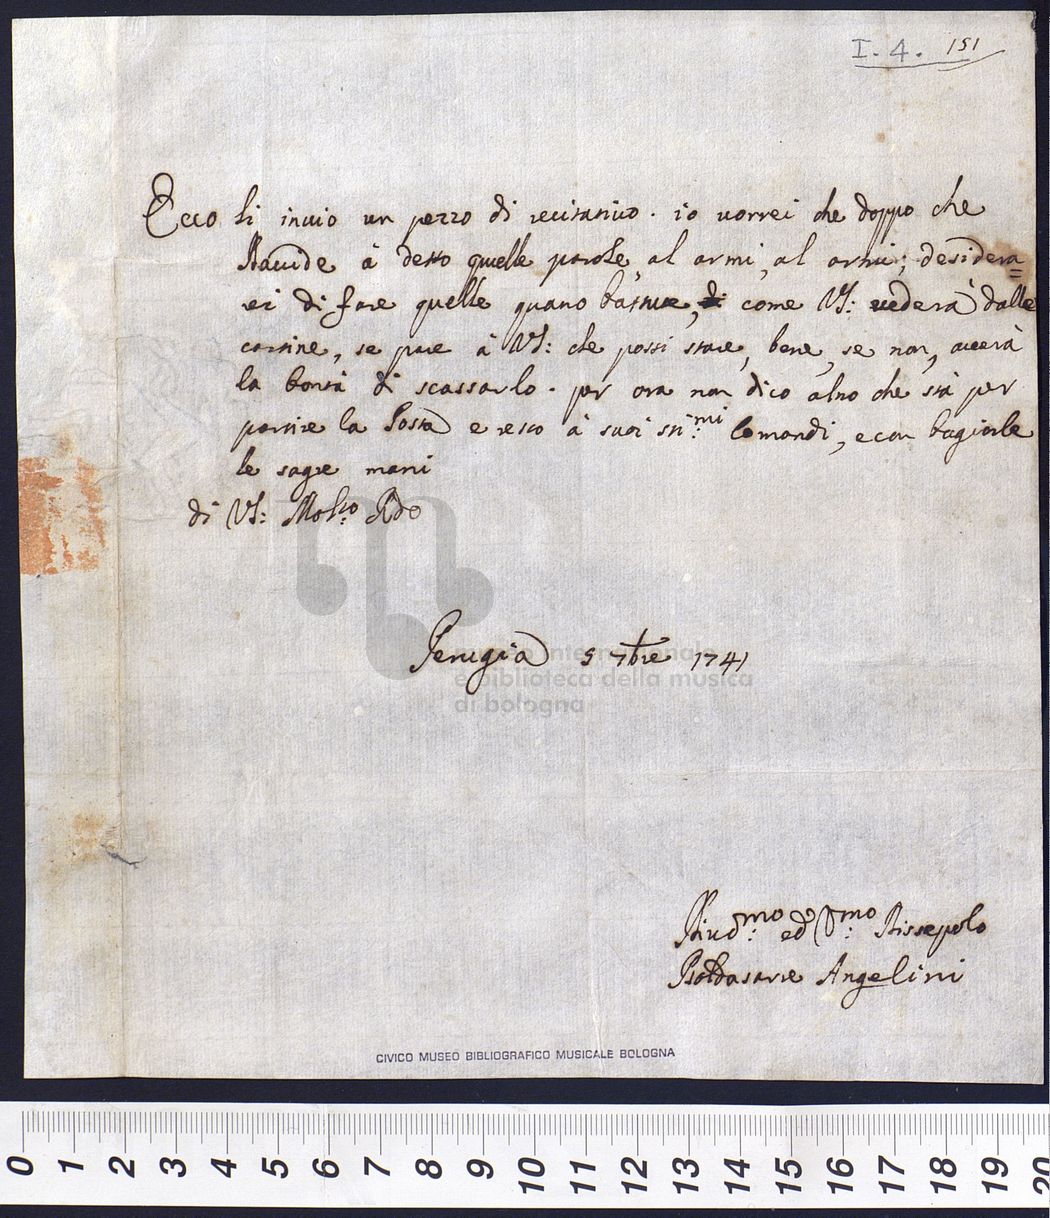 I. 4. 151
Ecco li inuio un pezzo di recitatiuo. io uorrei che doppo che
Dauide à detto quelle parole, al armi, al armi, desidera=
ei di fare quelle quatro battute, come VS: uederà dalle
cartine, se pare à VS: che possi stare, bene, se non, auerà
la bontà di scassarlo. per ora non dico altro che stà per
partire la Posta e resto à suoi sti:mi Comandi, e con bagiarle
le sagre mani
di VS: Molto Rdo
Perugia 5 7bre 1741
museo internazionale
e biblioteca della musica
di bologna
ed Disscepolo
Baldasarre Angelini
CIVICO MUSEO BIBLIOGRAFICO MUSICALE BOLOGNA
0 1 2 3 4 5 6 7 8 9 10 11 12 13 14 15 16 17 18 19 20